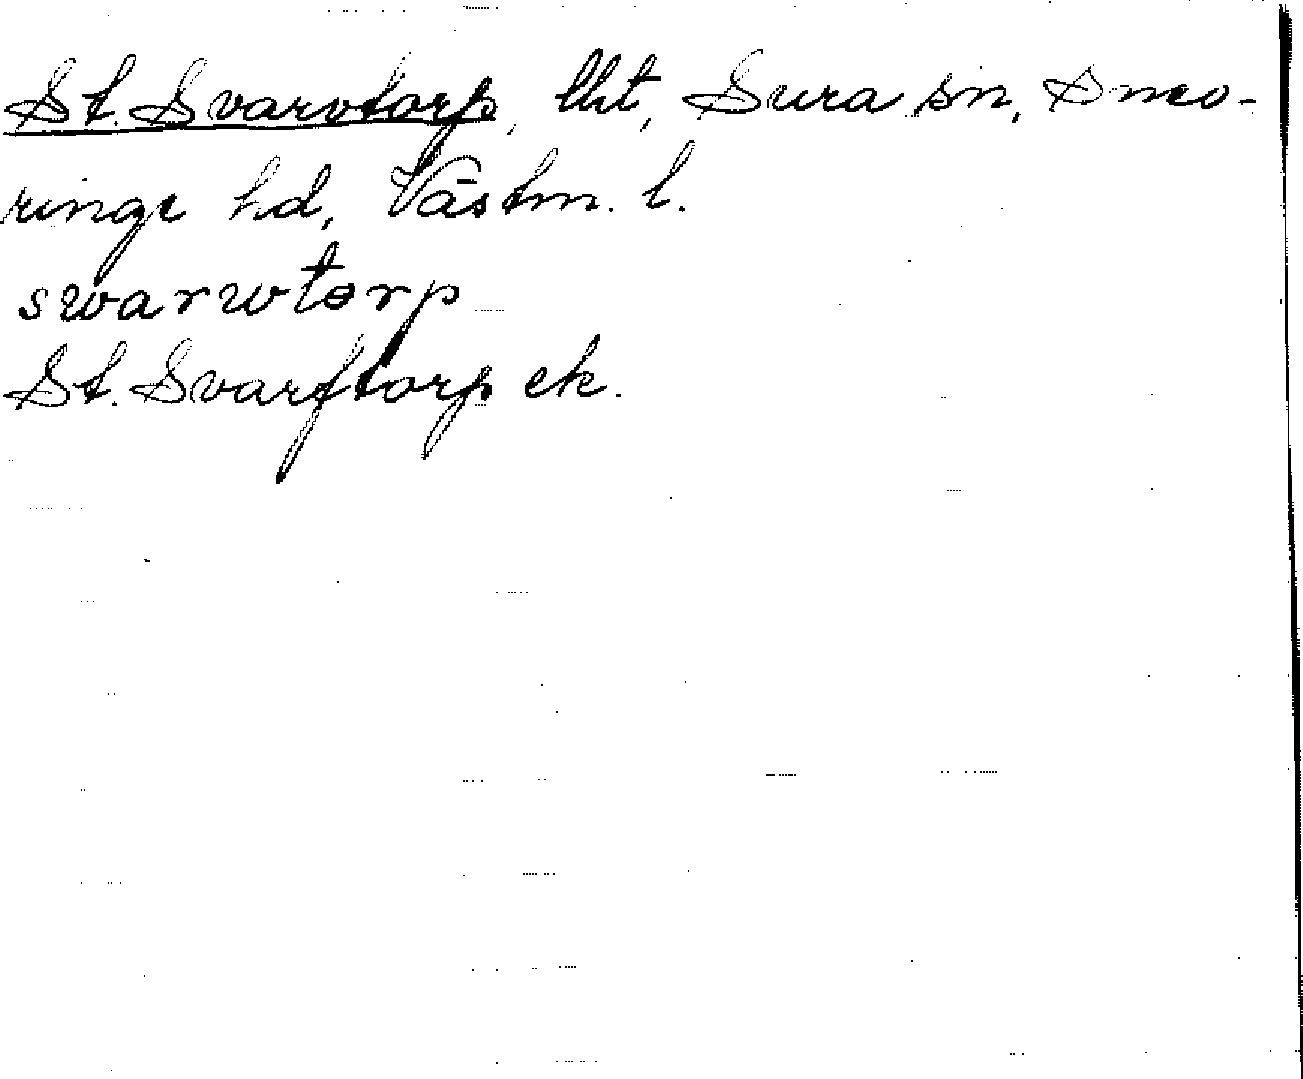 St. Svarvtorp, lht, Sura sn, Snev-
ringe hd, Västm. l.
swarwtorp
St. Svarftorp ek.